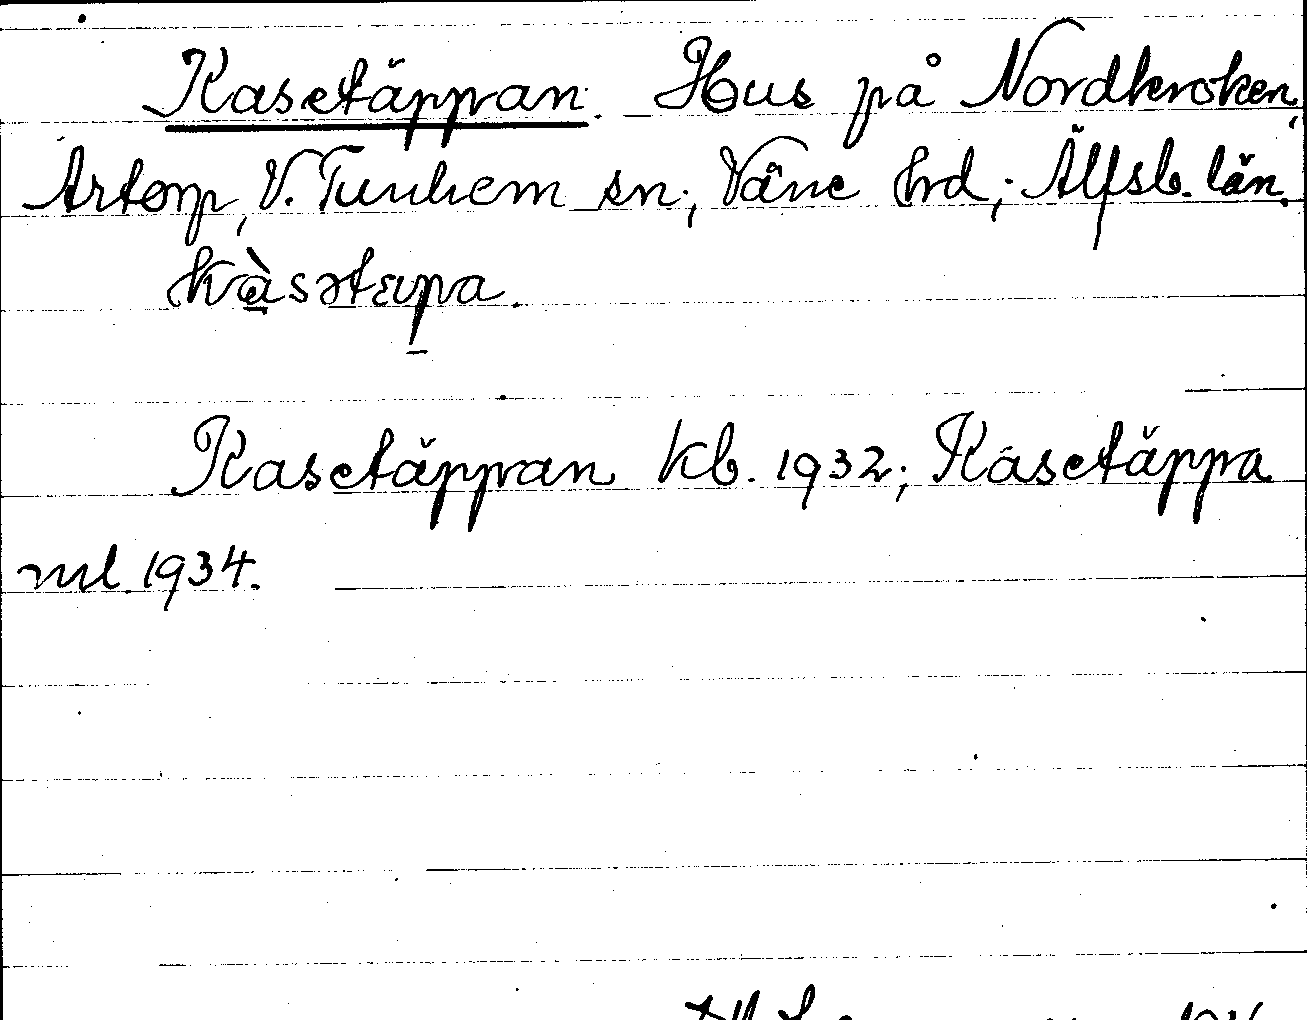 Kasetäppan. Hus på Nordkroken,
Artorp, V. Tunhem sn; Väne hrd; Älfsb. län.
kàsətɛpa.
Kasetäppan kb. 1932; Kasetäppa
ml. 1934.